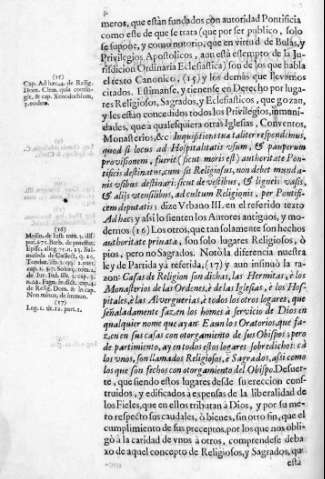 meros, que estàn fundados con autoridad Pontificia
como este de que se trata (que por ser publico, solo
se supone, y como notorio, que en virtud de Bulas, y
Privilegios Apostolicos, aun està essempto de la Ju-
risdicion Ordinaria Eclesiastica) son de los que habla
el texto Canonico, (15) y los demàs que llevamos
citados. Estimanse, y tienense en Derecho por luga-
res Religiosos, Sagrados, y Eclesiasticos, que gozan,
y les estàn concedidos todos los Privilegios, inmuni-
dades, que à qualesquiera otras Iglesias, Conventos,
Monasterios, &c
quod si locus ad Hospitalitatis usum, & pauperum
provisionem, fuerit (sicut moris est) authoritate Ponti-
ficis destinatus, cum sit Religiosus, non debet munda-
nis usibus destinari, sicut de vestibus, & ligneis vasis,
& alijs utensilibus, ad cultum Religionis, per Pontifi-
cem deputatis: dize Urbano III. en el referido texto
Ad hæc; y assi lo sienten los Autores antiguos, y mo-
dernos (16) Los otros, que tan solamente son hechos
authoritate privata, son solo lugares Religiosos, ò
pios, pero no Sagrados. Notò la diferencia nuestra
ley de Partida yà referida, (17) y aun insinuò la ra-
zon: Casas de Religion son dichas, las Hermitas, è los
Monasterios de las Ordenes, è de las Iglesias, è los Hos-
pitales, è las Alverguerias, è todos los otros lugares, que
señaladamente fazen los homes à servicio de Dios en
qualquier nome que ayan E aun los Oratorios, que fa-
zen en sus casas con otorgamiento de sus Obispos: pero
de partimiento, ay en todos estos logares sobredichos: cà
los unos, son llamados Religiosos, è Sagrados, assi como
los que son fechos con otorgamiento del Obispo. Desuer-
te, que siendo estos lugares desde su ereccion cons-
truidos, y edificados à expensas de la liberalidad de
los Fieles, que en ellos tributan à Dios, y por su me-
ro respecto sus caudales, ò bienes, sin otro fin, que el
cumplimiento de sus preceptos, por los que nos obli-
gò à la caridad de unos à otros, comprendese deba-
xo de aquel concepto de Religiosos, y Sagrados, que
esta
(15)
Cap. Ad hæc 4. de Relig.
3. eodem.
(16)
(17)
Leg. 1. tit. 12. part. 1.